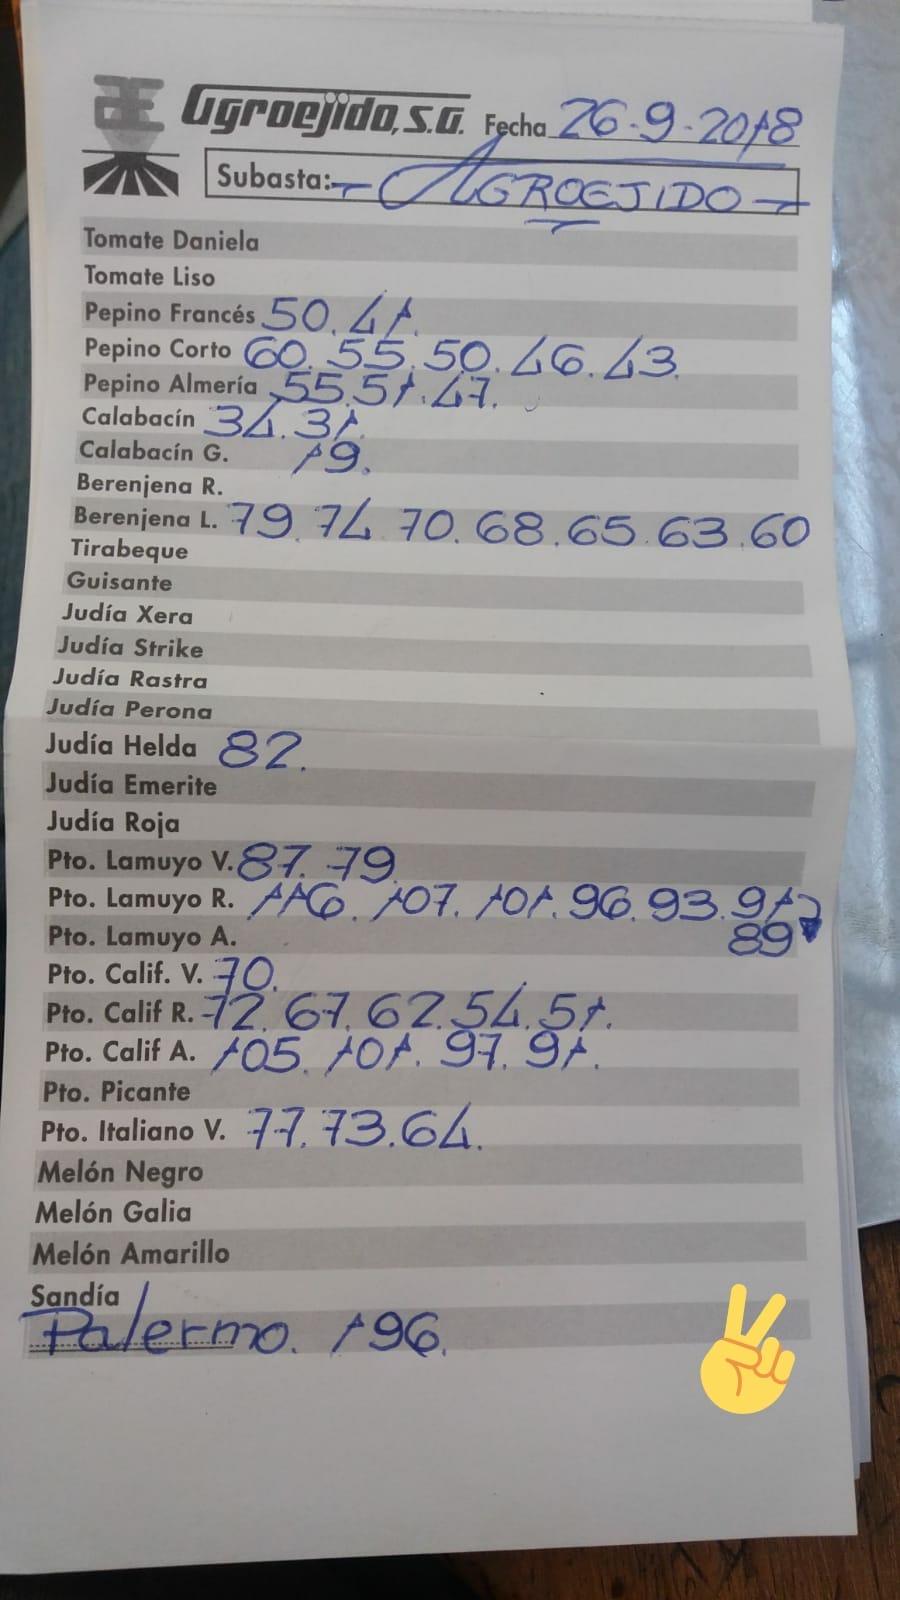 Agroejido, S.A. Fecha 26-9-2018
Subasta: AGROEJIDO
Tomate Daniela
Tomate Liso
Pepino Francés 50. 41.
Pepino Corto 60. 55. 50. 46. 43.
Pepino Almería 55. 51. 47.
Calabacín 34. 31.
Calabacín G. 19.
Berenjena R.
Berenjena L. 79. 74. 70. 68. 65. 63. 60
Tirabeque
Guisante
Judía Xera
Judía Strike
Judía Rastra
Judía Perona
Judía Helda 82.
Judía Emerite
Judía Roja
Pto. Lamuyo V. 87. 79
Pto. Lamuyo R. 116. 107. 101. 96. 93. 91
89
Pto. Lamuyo A.
Pto. Calif. V. 70.
Pto. Calif R. 72. 67. 62. 54. 51.
Pto. Calif A. 105. 101. 97. 91.
Pto. Picante
Pto. Italiano V. 77. 73. 64.
Melón Negro
Melón Galia
Melón Amarillo
Sandía
Palermo. 196.